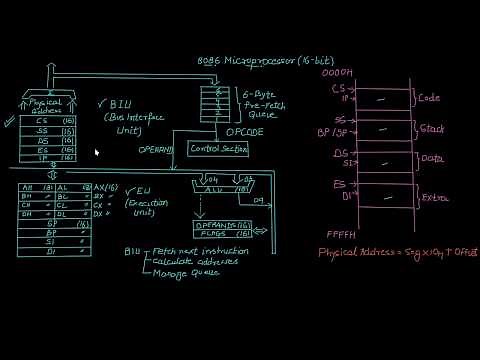 8086 Microprocessor (16-bit)
Physical
Address
CS (16)
SS (16)
DS (16)
ES (16)
IP (16)
✓ BIU
(Bus Interface
Unit)
6
5
4
3
2
1
6-Byte
Pre-Fetch
Queue
OPCODE
OPERAND
Control Section
AH (8) AL (8) AX (16)
BH " BL " BX "
CH " CL " CX "
DH " DL " DX "
SP (16)
BP "
SI "
DI "
✓ EU
(Execution
Unit)
ALU (16)
OPERANDS (16)
FLAGS (16)
BIU - Fetch next instruction
- Calculate addresses
- Manage Queue
0000H
CS
IP
Code
SS
BP / SP
Stack
DS
SI
Data
ES
DI
Extra
FFFFH
Physical Address = Seg x 10H + Offset